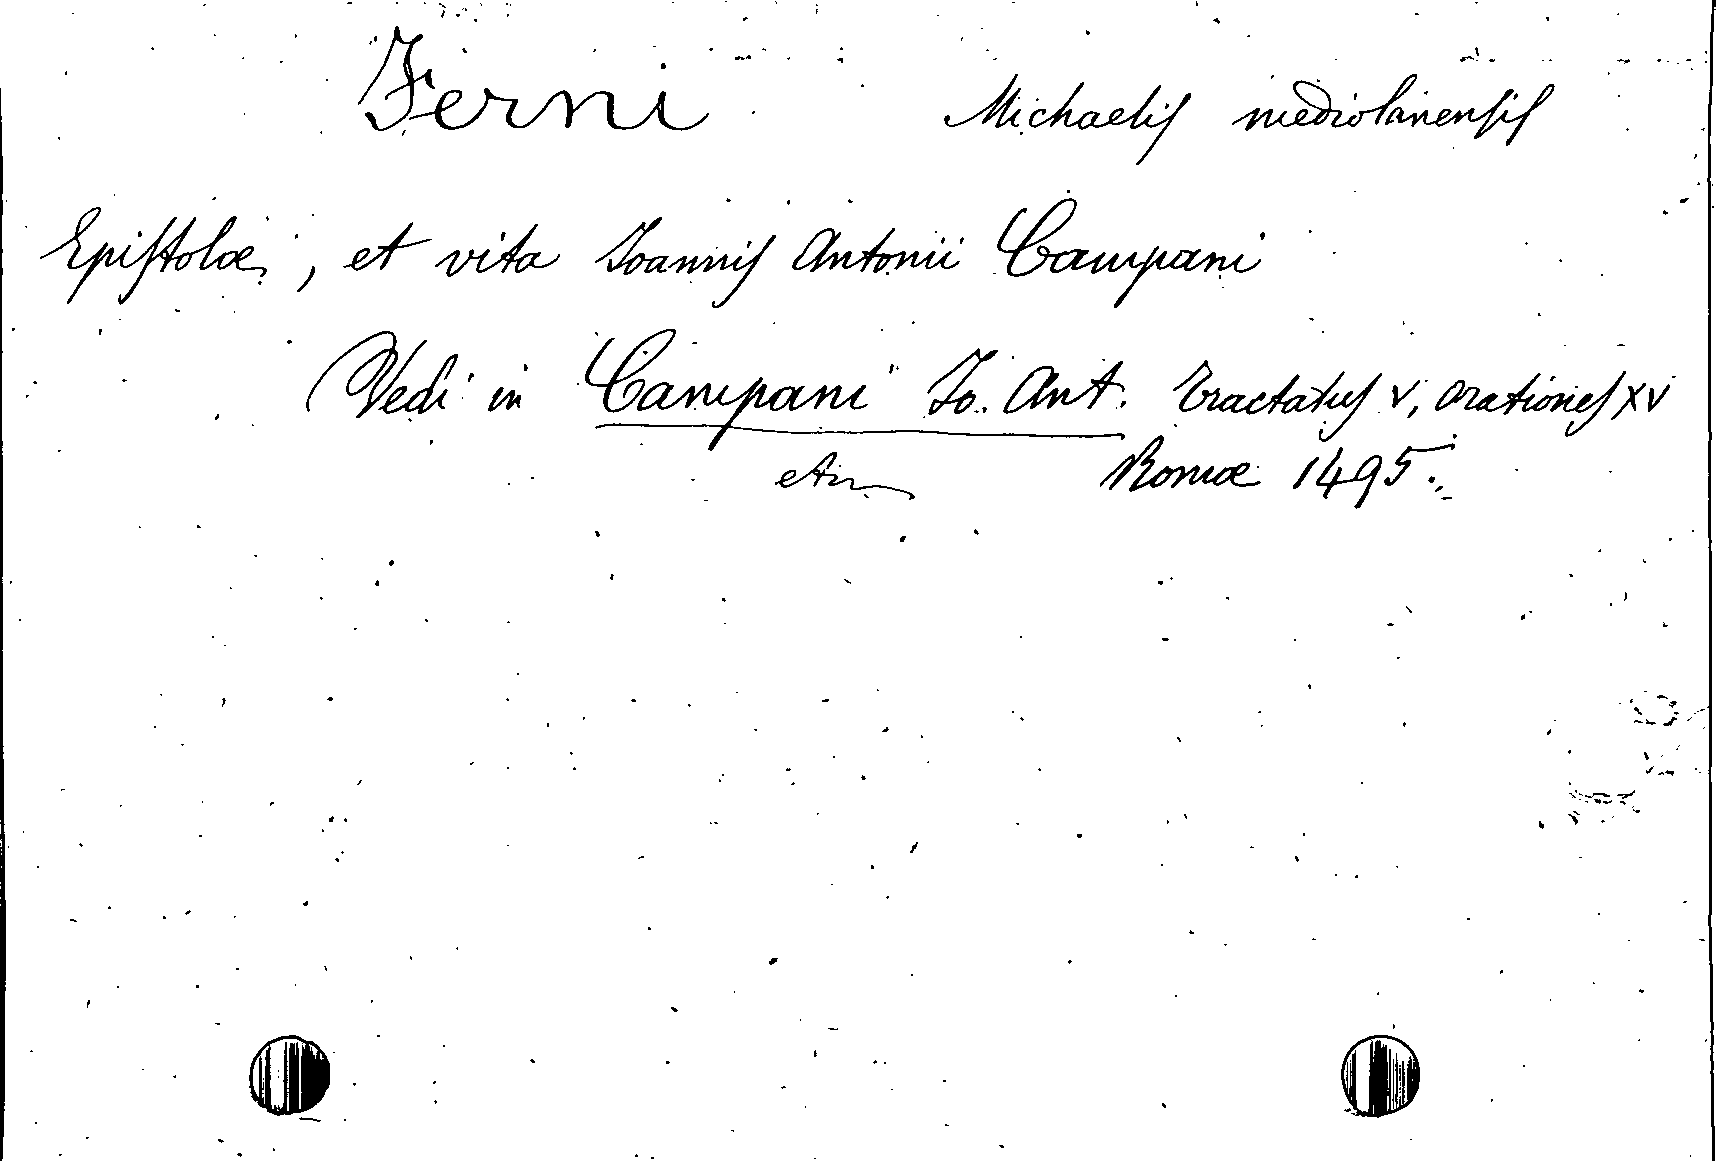 Ferni Michaelis mediolanensis
Epistolæ, et vita Joannis Antonii Campani
Vedi in Campani Jo. Ant. Tractatus V, orationes XV
Romæ 1495.